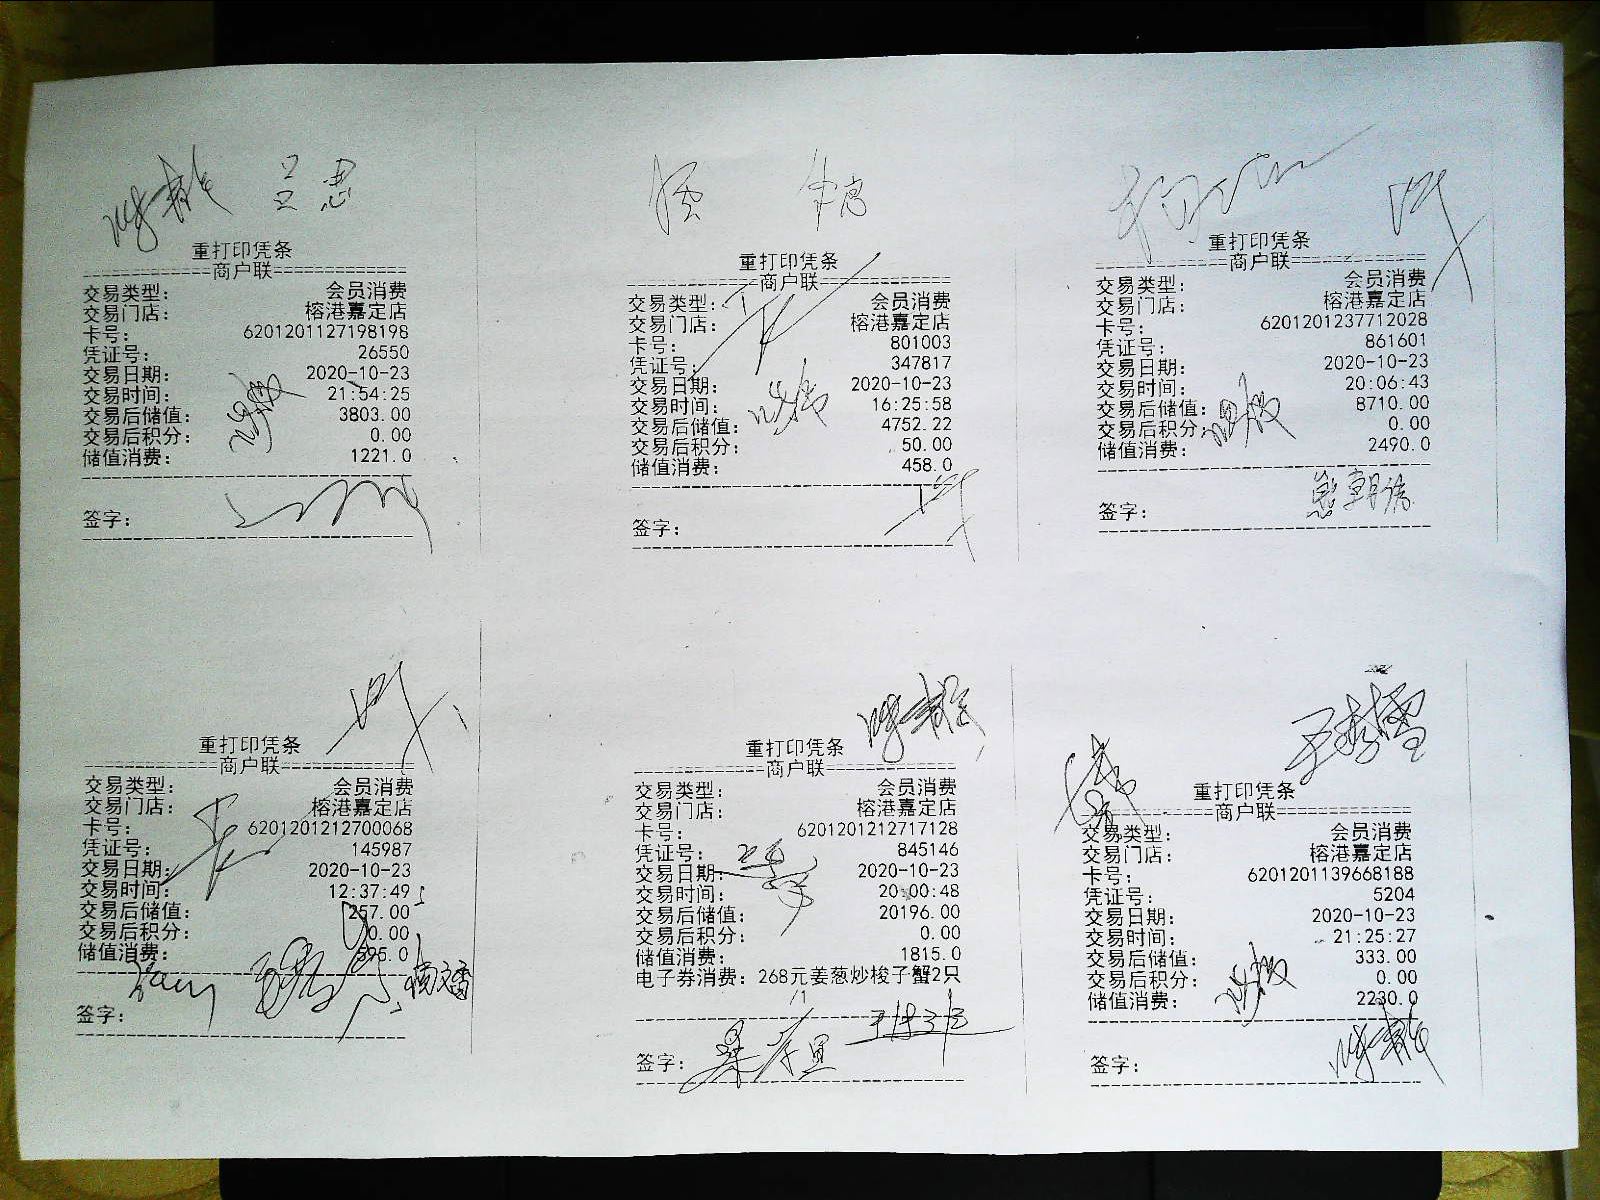 重打印凭条
商户联
交易类型: 会员消费
交易门店: 榕港嘉定店
卡号: 6201201127198198
凭证号: 26550
交易日期: 2020-10-23
交易时间: 21:54:25
交易后储值: 3803.00
交易后积分: 0.00
储值消费: 1221.0
签字:
重打印凭条
商户联
交易类型: 会员消费
交易门店: 榕港嘉定店
卡号: 801003
凭证号: 347817
交易日期: 2020-10-23
交易时间: 16:25:58
交易后储值: 4752.22
交易后积分: 50.00
储值消费: 458.0
签字:
重打印凭条
商户联
交易类型: 会员消费
交易门店: 榕港嘉定店
卡号: 6201201237712028
凭证号: 861601
交易日期: 2020-10-23
交易时间: 20:06:43
交易后储值: 8710.00
交易后积分: 0.00
储值消费: 2490.0
签字:
重打印凭条
商户联
交易类型: 会员消费
交易门店: 榕港嘉定店
卡号: 6201201212700068
凭证号: 145987
交易日期: 2020-10-23
交易时间: 12:37:49
交易后储值: 257.00
交易后积分: 0.00
储值消费: 395.0
签字:
重打印凭条
商户联
交易类型: 会员消费
交易门店: 榕港嘉定店
卡号: 6201201212717128
凭证号: 845146
交易日期: 2020-10-23
交易时间: 20:00:48
交易后储值: 20196.00
交易后积分: 0.00
储值消费: 1815.0
电子券消费: 268元姜葱炒梭子蟹2只
/1
签字:
王李雪
重打印凭条
商户联
交易类型: 会员消费
交易门店: 榕港嘉定店
卡号: 6201201139668188
凭证号: 5204
交易日期: 2020-10-23
交易时间: 21:25:27
交易后储值: 333.00
交易后积分: 0.00
储值消费: 2230.0
签字: